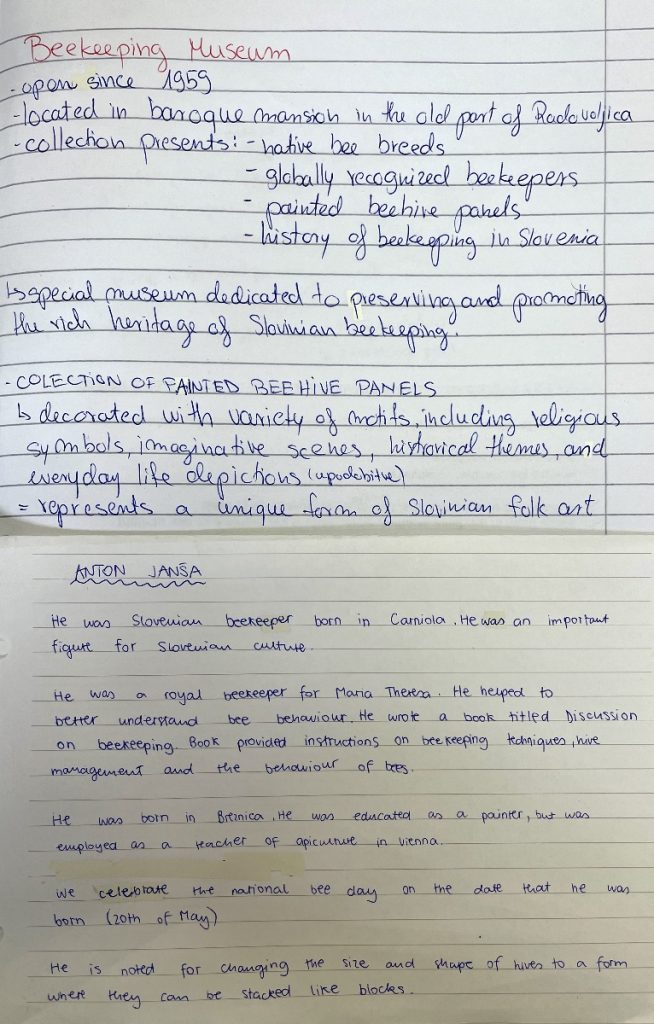 Beekeeping Museum
- open since 1959
- located in baroque mansion in the old part of Radovljica
- collection presents: - native bee breeds
- globally recognized beekeepers
- painted beehive panels
- history of beekeeping in Slovenia
↳ special museum dedicated to preserving and promoting
the rich heritage of Slovinian beekeeping.
- COLECTION OF PAINTED BEEHIVE PANELS
↳ decorated with variety of motifs, including religious
symbols, imaginative scenes, historical themes, and
everyday life depictions (upodobitve)
= represents a unique form of Slovinian folk art
ANTON JANŠA
He was Slovenian beekeeper born in Carniola. He was an important
figure for Slovenian culture.
He was a royal beekeeper for Maria Theresa. He helped to
better understand bee behaviour. He wrote a book titled Discussion
on beekeeping. Book provided instructions on beekeeping techniques, hive
management and the behaviour of bees.
He was born in Breznica. He was educated as a painter, but was
employed as a teacher of apiculture in Vienna.
We celebrate the national bee day on the date that he was
born (20th of May)
He is noted for changing the size and shape of hives to a form
where they can be stacked like blocks.